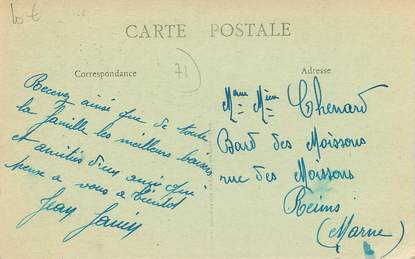 10 €
CARTE POSTALE
Correspondance
71
Adresse
Recevez ainsi que de toute
la famille les meilleurs baisers
et amitiés d'un ami qui
pense a vous a bientot
Jean
Thenard
Bard des Moissons
rue des Moissons
Reims
(Marne)